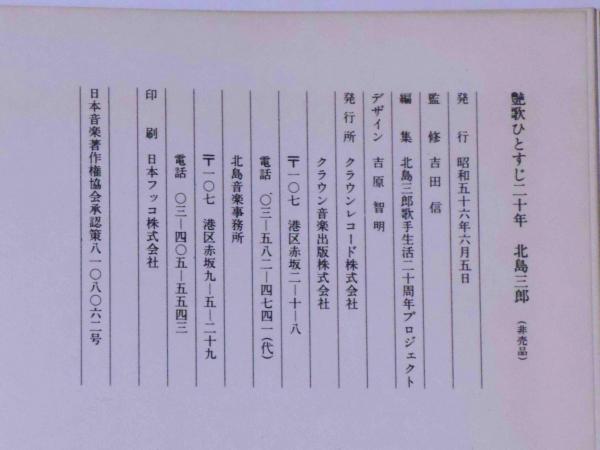 艶歌ひとすじ二十年　北島三郎　（非売品）
発行　昭和五十六年六月五日
監修　吉田　信
編集　北島三郎歌手生活二十周年プロジェクト
デザイン　吉原智明
発行所　クラウンレコード株式会社
クラウン音楽出版株式会社
〒一〇七　港区赤坂二―十―八
電話　〇三―五八二―四七四一（代）
北島音楽事務所
〒一〇七　港区赤坂九―五―二十九
電話　〇三―四〇五―五五四三
印刷　日本フッコ株式会社
日本音楽著作権協会承認策八一〇八〇六二号